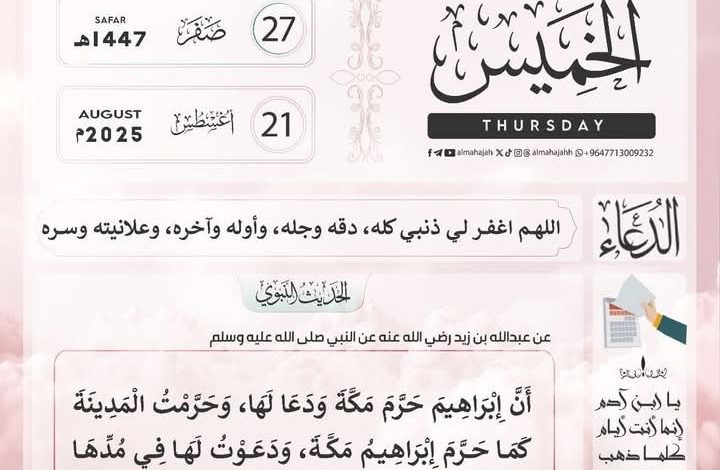 الخميس
THURSDAY
almahajah almahajahh +9647713009232
27 صفر SAFAR 1447هـ
21 أغسطس AUGUST 2025م
الدعاء
اللهم اغفر لي ذنبي كله، دقه وجله، وأوله وآخره، وعلانيته وسره
الحديث النبوي
عن عبدالله بن زيد رضي الله عنه عن النبي صلى الله عليه وسلم
أَنَّ إِبْرَاهِيمَ حَرَّمَ مَكَّةَ وَدَعَا لَهَا، وَحَرَّمْتُ الْمَدِينَةَ
كَمَا حَرَّمَ إِبْرَاهِيمُ مَكَّةَ، وَدَعَوْتُ لَهَا فِي مُدِّهَا
يا ابن آدم
إنما أنت أيام
كلما ذهب